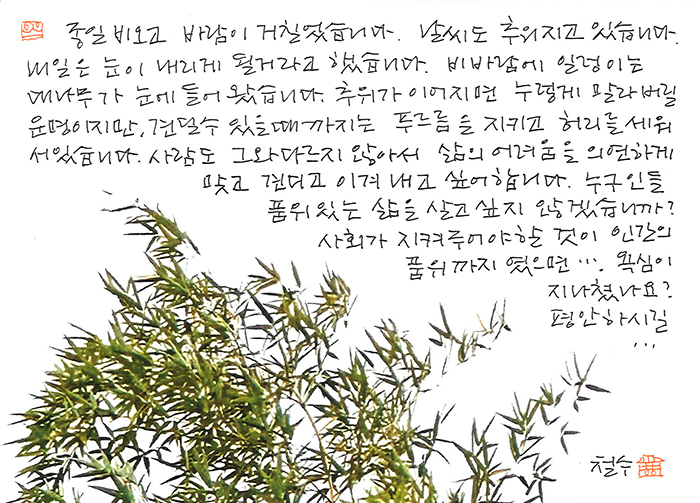 종일 비오고 바람이 거칠었습니다. 날씨도 추워지고 있습니다.
내일은 눈이 내리게 될거라고 했습니다. 비바람에 일렁이는
대나무가 눈에 들어 왔습니다. 추위가 이어지면 누렇게 말라버릴
운명이지만, 견딜수 있을때 까지는 푸르름을 지키고 허리를 세워
서있습니다. 사람도 그와 다르지 않아서 삶의 어려움을 의연하게
맞고 견디고 이겨 내고 싶어합니다. 누구인들
품위있는 삶을 살고 싶지 않겠습니까?
사회가 지켜주어야할 것이 인간의
품위까지 였으면 .... 욕심이
지나쳤나요?
평안하시길
...
철수